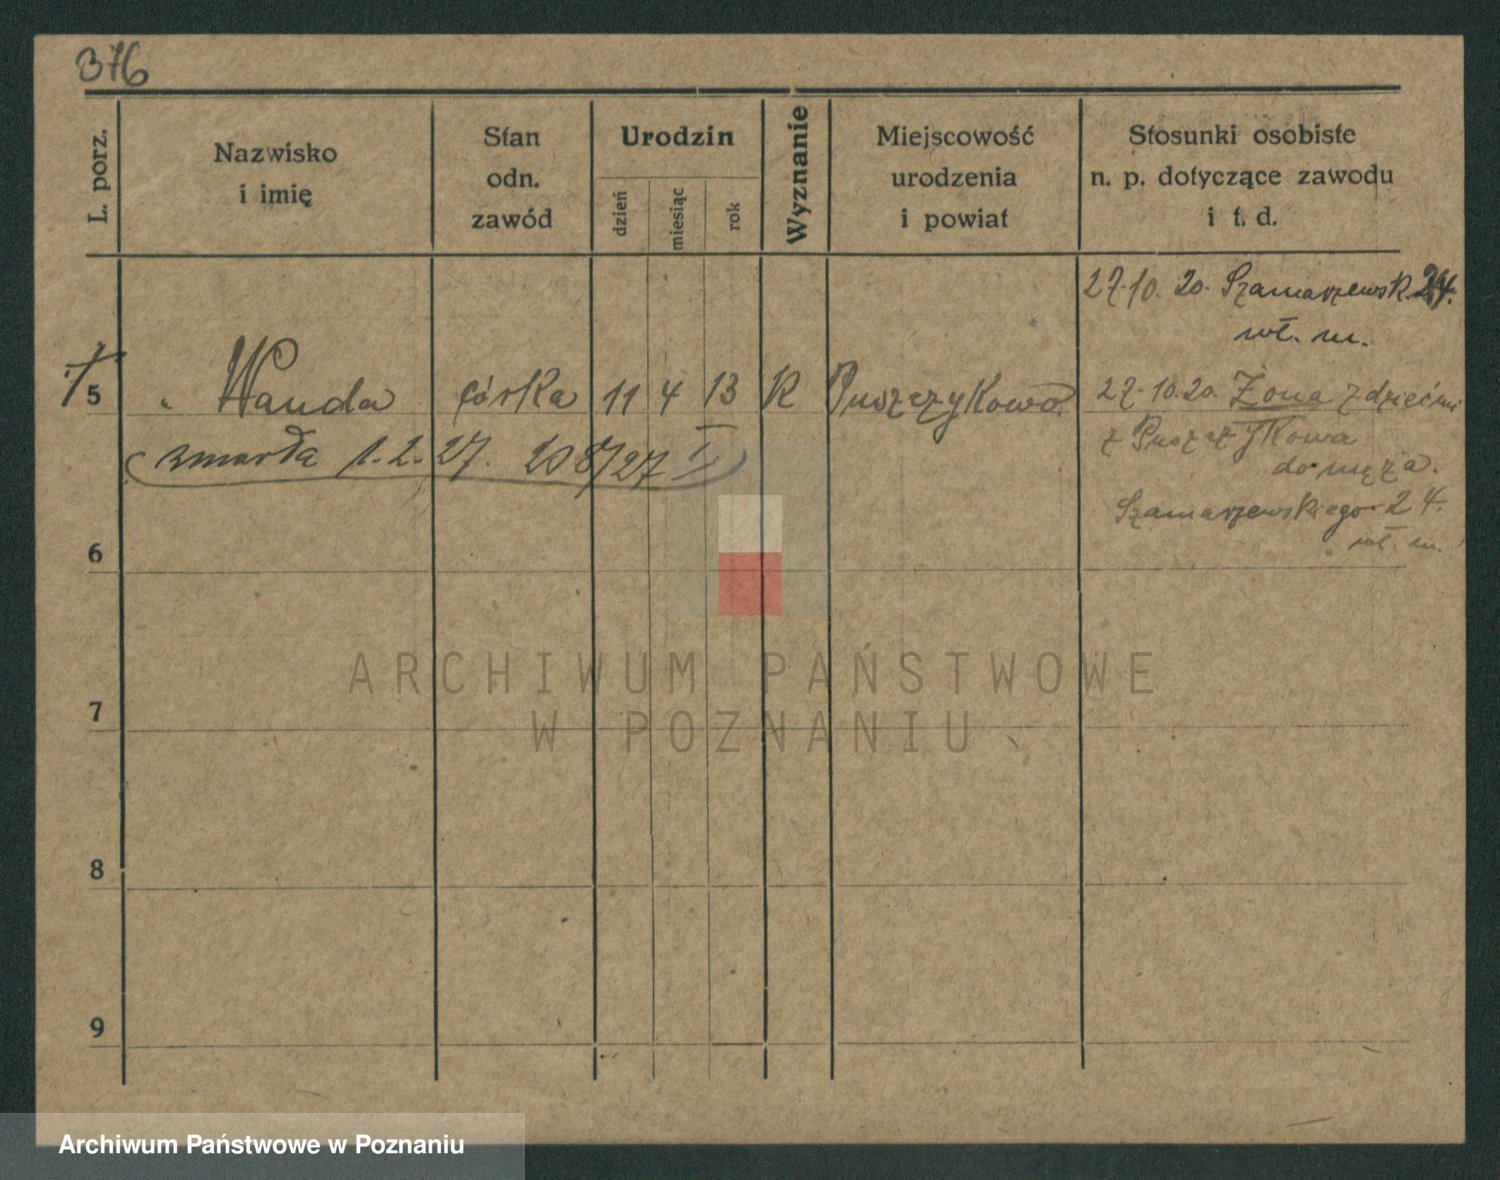 376
L. porz.
Nazwisko
i imię
Stan
odn.
zawód
Urodzin
dzień
miesiąc
rok
Wyznanie
Miejscowość
urodzenia
i powiat
Stosunki osobiste
n. p. dotyczące zawodu
i t. d.
27.10. 20. Szamarzewsk. 24.
wł. m.
5 " Wanda córka 11 4 13 K Puszczykowo.
27.10.20. Żona z dziećmi
z Puszczykowa
do męża.
Szamarzewskiego 24.
wł. m.
(zmarła 1.2.27. 208/27 I)
6
7
8
9
ARCHIWUM PAŃSTWOWE
W POZNANIU
Archiwum Państwowe w Poznaniu